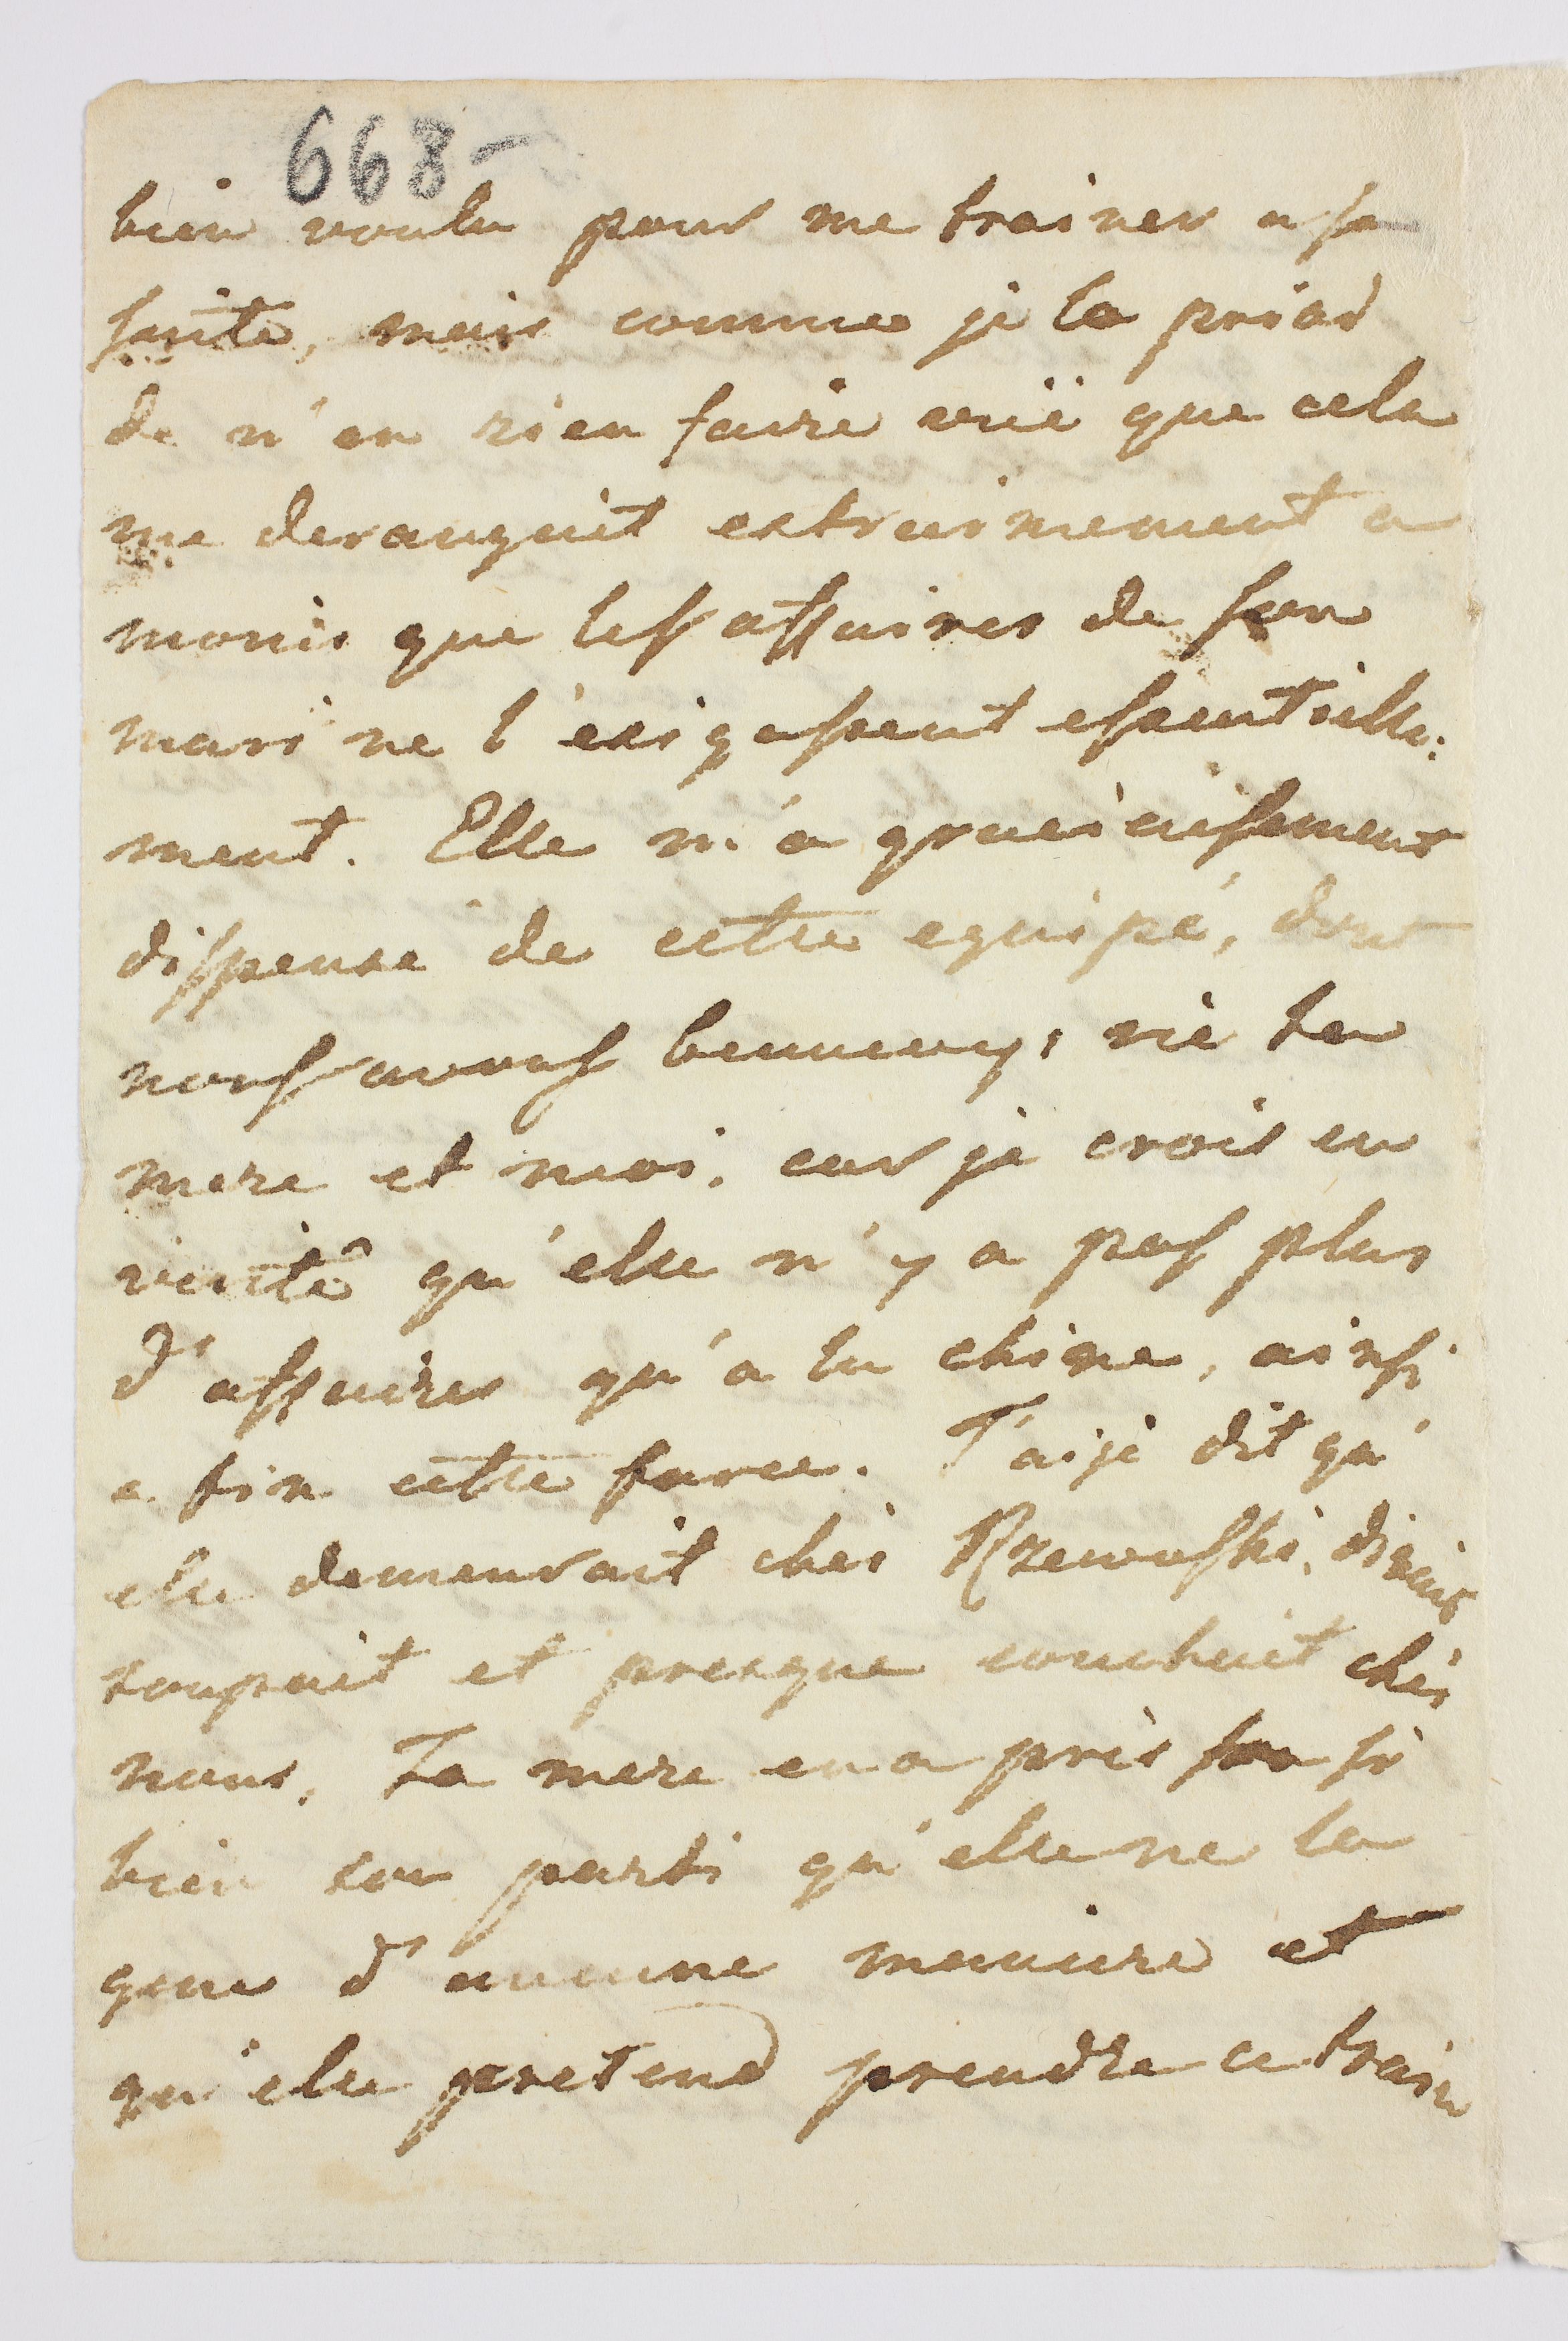 668-
bien voulu pour me trainer a sa
suite, mais comme je la priai
de n'en rien faire vuë que cela
me derangait extraimement a
monis que les affaires de son
mari ne l'exigassent essentielle:
ment. Elle m'a gracieusement
dispensé de cette equipé, dont
nous avons beaucoup, rie ta
mere et moi, car je crois en
verité qu'elle n'y a pas plus
d'affaires qu'a la chine, ainsi
a fin cette farce. T'aije dit qu'
elle demeurait chés Rzewuski, dinait
soupait et presque couchait chés
nous. Ta mere en a pris si
bien son parti qu'elle ne la
gene d'aucune maniere et
qu'elle pretend prendre ce train